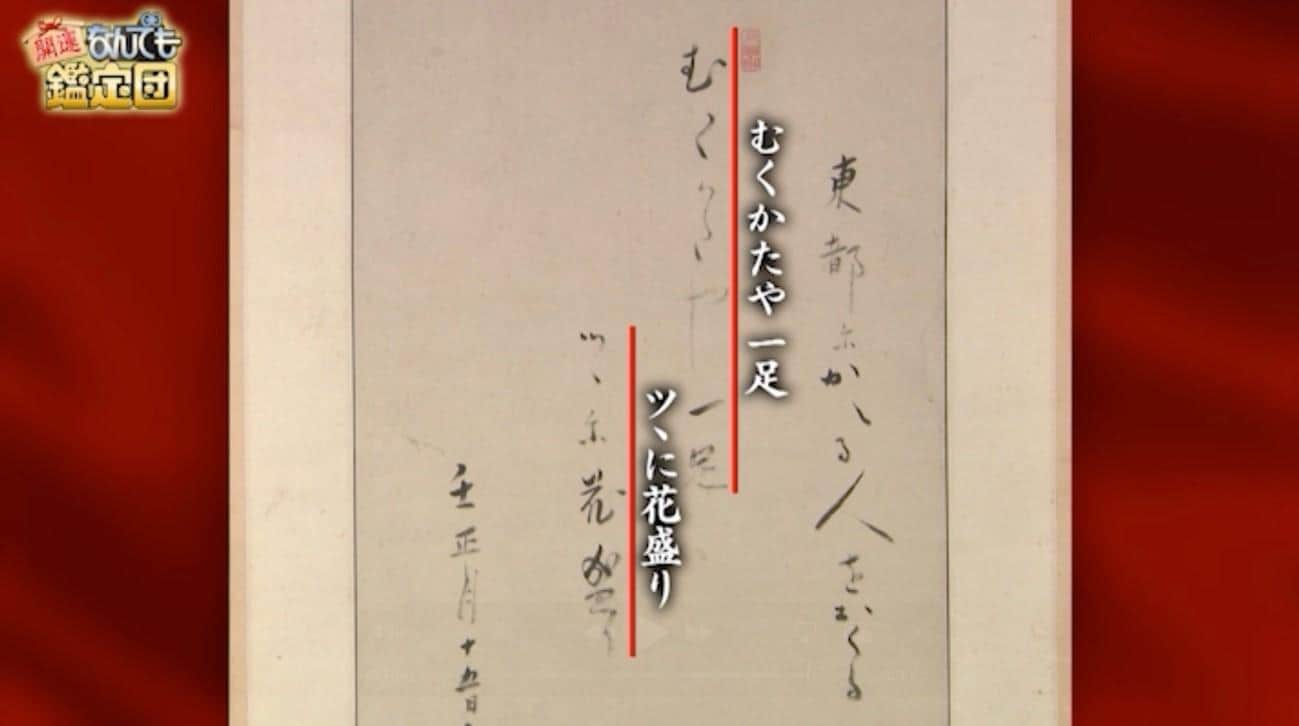 開運
なんでも
鑑定団
東都にかへる人をおくる
むくかたや
一足
ツヽに花盛り
壬正月十五日
むくかたや 一足
ツヽに花盛り